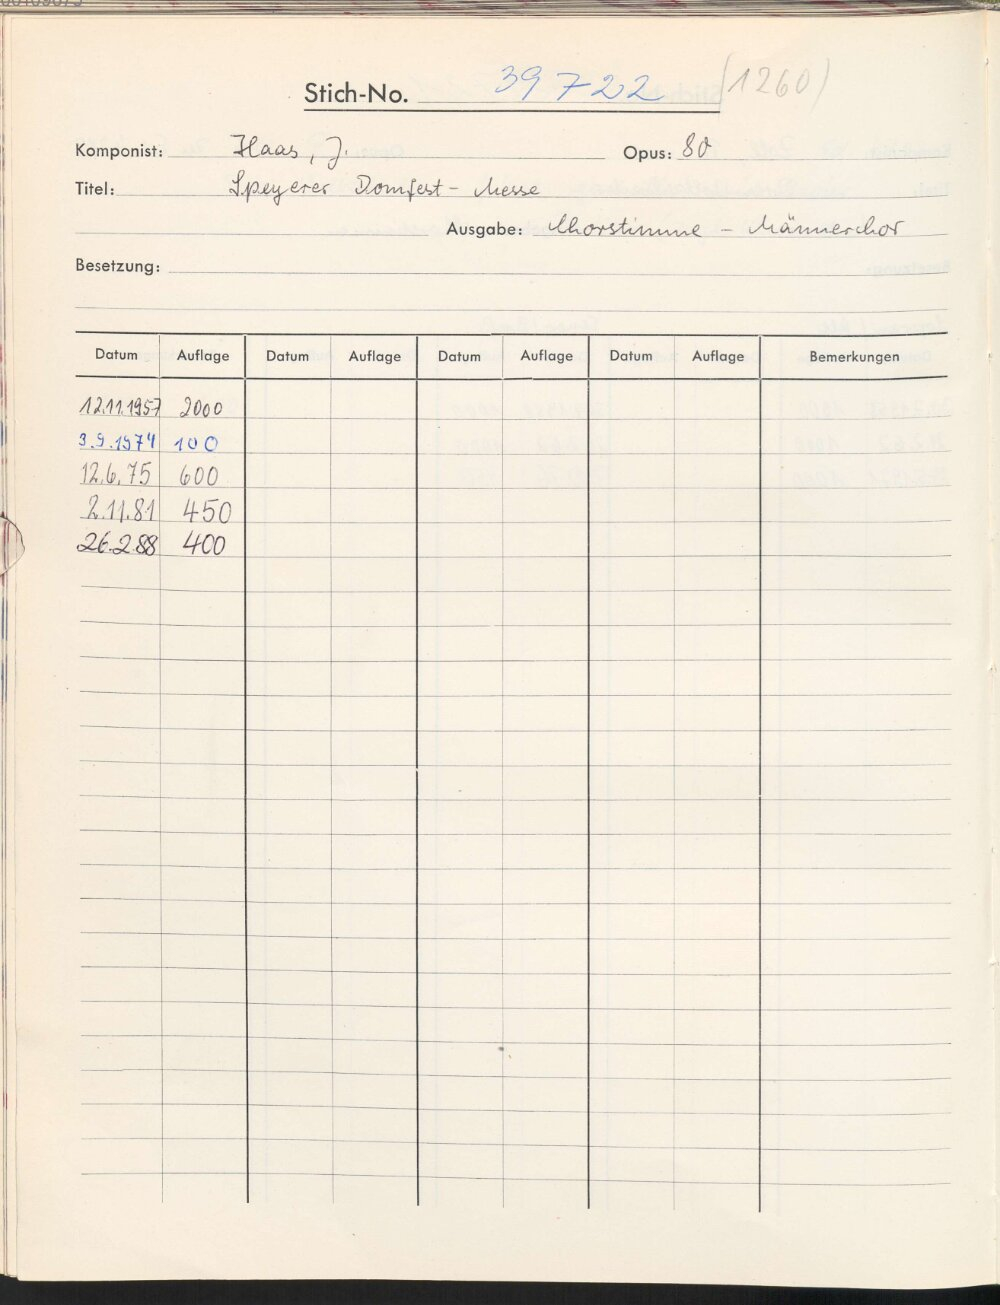 Stich-No. 39722 (1260)
Komponist: Haas, J. Opus: 80
Titel: Speyerer Domfest - Messe
Ausgabe: Chorstimme - Männerchor
Besetzung:
Datum Auflage Datum Auflage Datum Auflage Datum Auflage Bemerkungen
12.11.1957 2000
3.9.1974 100
12.6.75 600
2.11.81 450
26.2.88 400